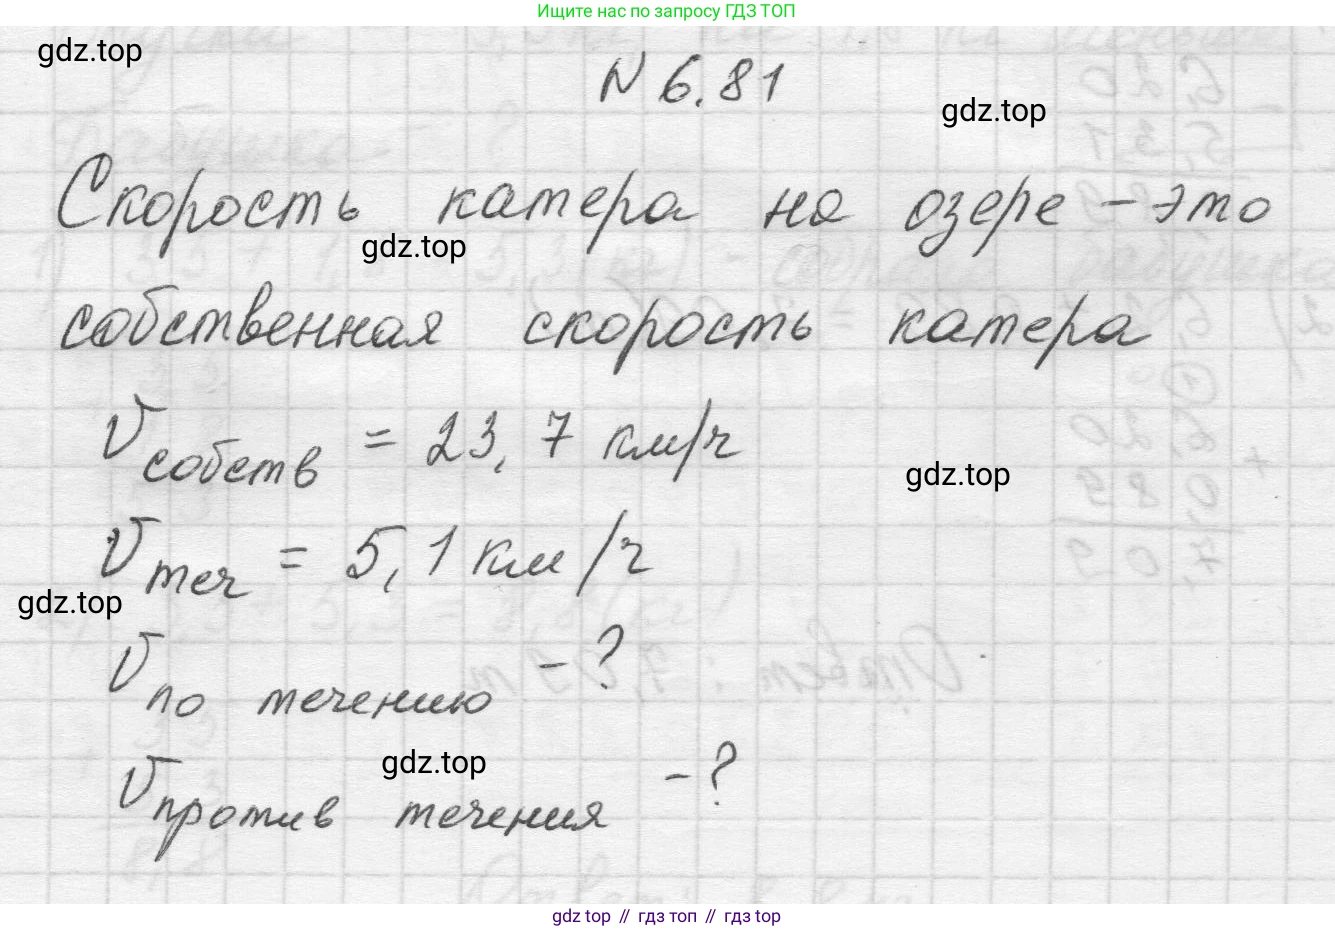 Ищите нас по запросу ГДЗ ТОП
gdz.top
N 6.81
gdz.top
Скорость катера на озере - это
gdz.top
собственная скорость катера
v собств = 23,7 км/ч
gdz.top
v теч = 5,1 км/ч
gdz.top
v по течению - ?
gdz.top
v против течения - ?
gdz top // гдз топ // гдз top